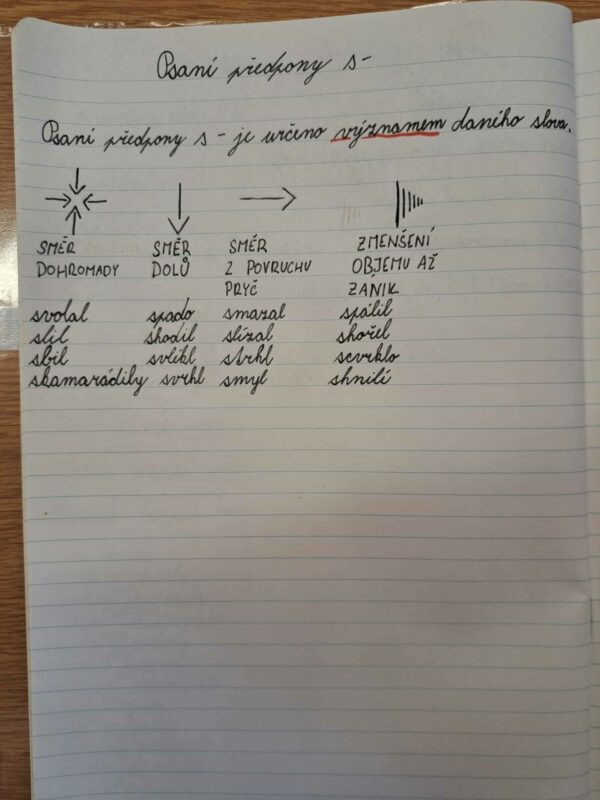 Psaní předpony s-
Psaní předpony s- je určeno významem daného slova.
SMĚR SMĚR SMĚR ZMENŠENÍ
DOHROMADY DOLŮ Z POVRUCHU OBJEMU AŽ
PRYČ ZÁNIK
svolal spado smazal spálil
slil shodil slízal shořel
sbil svlékl strhl scvrklo
skamarádily svrhl smyl shnilí